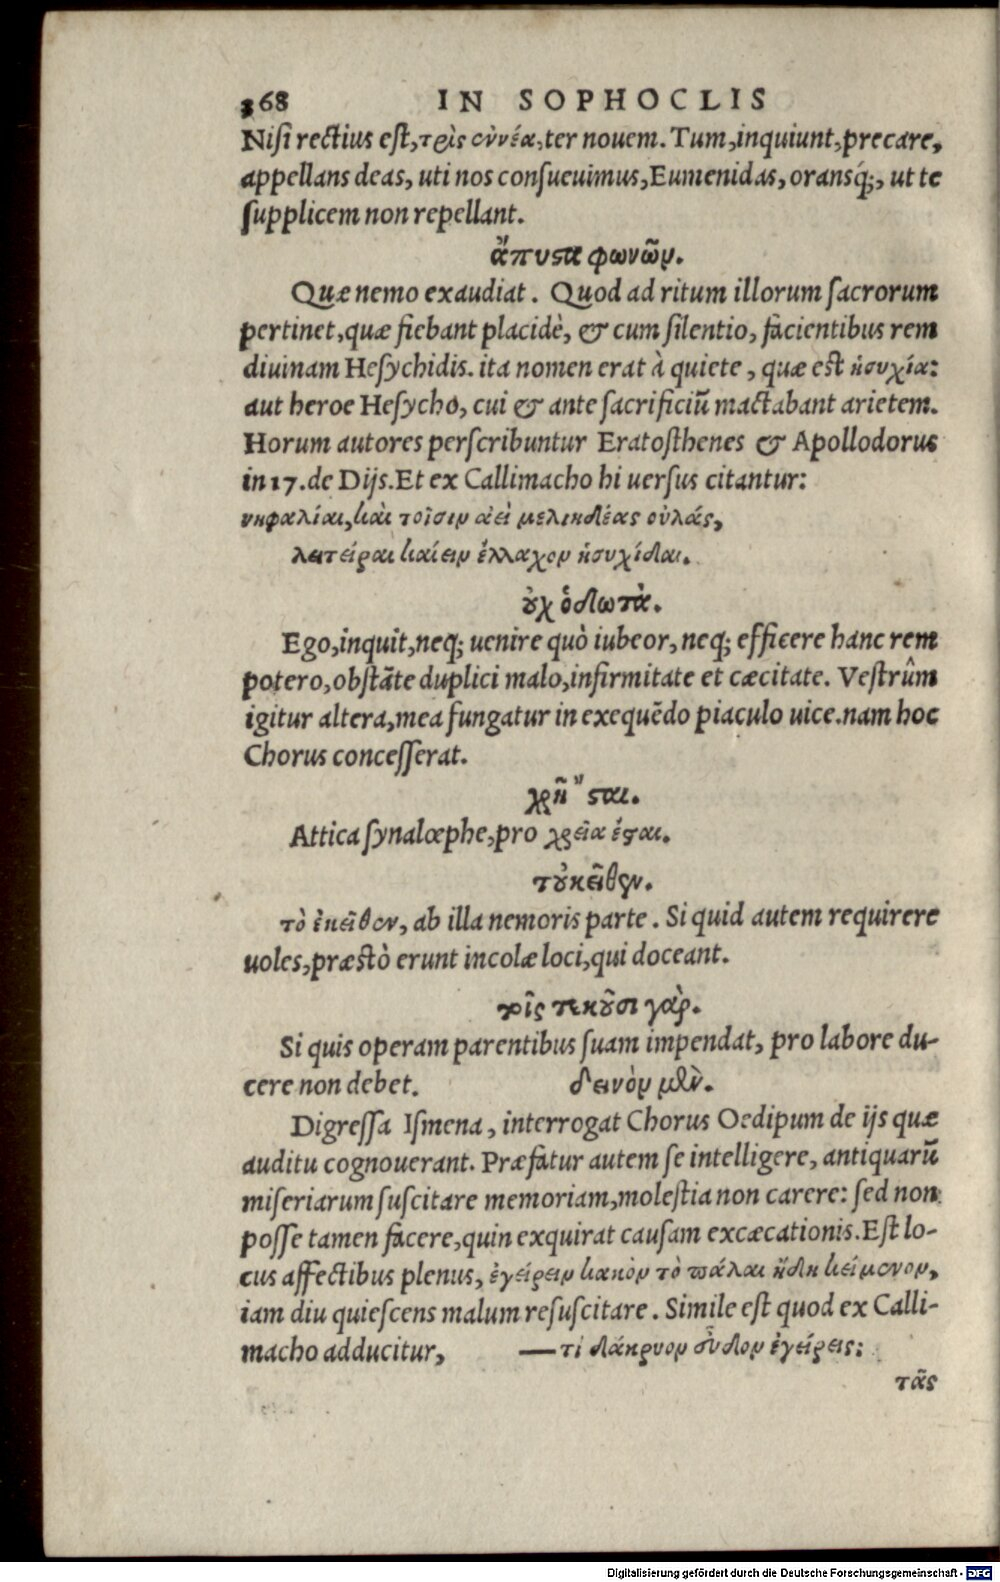 368 IN SOPHOCLIS
Niſi rectius eſt, τρὶς ἐννέα, ter nouem. Tum, inquiunt, precare,
appellans deas, uti nos conſueuimus, Eumenidas, oransq́;, ut te
ſupplicem non repellant.
ἄπυστα φωνῶν.
Quæ nemo exaudiat. Quod ad ritum illorum ſacrorum
pertinet, quæ fiebant placidè, & cum ſilentio, facientibus rem
diuinam Heſychidis. ita nomen erat à quiete, quæ eſt ἡσυχία:
aut heroe Heſycho, cui & ante ſacrificiū mactabant arietem.
Horum autores perſcribuntur Eratoſthenes & Apollodorus
in 17. de Dijs. Et ex Callimacho hi uerſus citantur:
νηφαλίαι, καὶ τοῖσιν ἀεὶ μελιηδέας οὐλάς,
λειτείραι καίειν ἔλλαχον ἡσυχίδαι.
οὐχ ὁδωτὰ.
Ego, inquit, neq; uenire quò iubeor, neq; efficere hanc rem
potero, obſtāte duplici malo, infirmitate et cæcitate. Veſtrûm
igitur altera, mea fungatur in exequēdo piaculo uice. nam hoc
Chorus conceſſerat.
χρῆ ῎σται.
Attica ſynalœphe, pro χρεία ἔσται.
τοὐκεῖθεν.
τὸ ἐκεῖθεν, ab illa nemoris parte. Si quid autem requirere
uoles, præſtò erunt incolæ loci, qui doceant.
τοῖς τεκοῦσι γὰρ.
Si quis operam parentibus ſuam impendat, pro labore du-
cere non debet. δεινὸν μὲν.
Digreſſa Iſmena, interrogat Chorus Oedipum de ijs quæ
auditu cognouerant. Præfatur autem ſe intelligere, antiquarū
miſeriarum ſuſcitare memoriam, moleſtia non carere: ſed non
poſſe tamen facere, quin exquirat cauſam excæcationis. Eſt lo-
cus affectibus plenus, ἐγείρειν κακὸν τὸ πάλαι ἤδη κείμενον,
iam diu quieſcens malum reſuſcitare. Simile eſt quod ex Calli-
macho adducitur, — τί δάκρυον εὗδον ἐγείρεις;
τᾶς
Digitalisierung gefördert durch die Deutsche Forschungsgemeinschaft - DFG